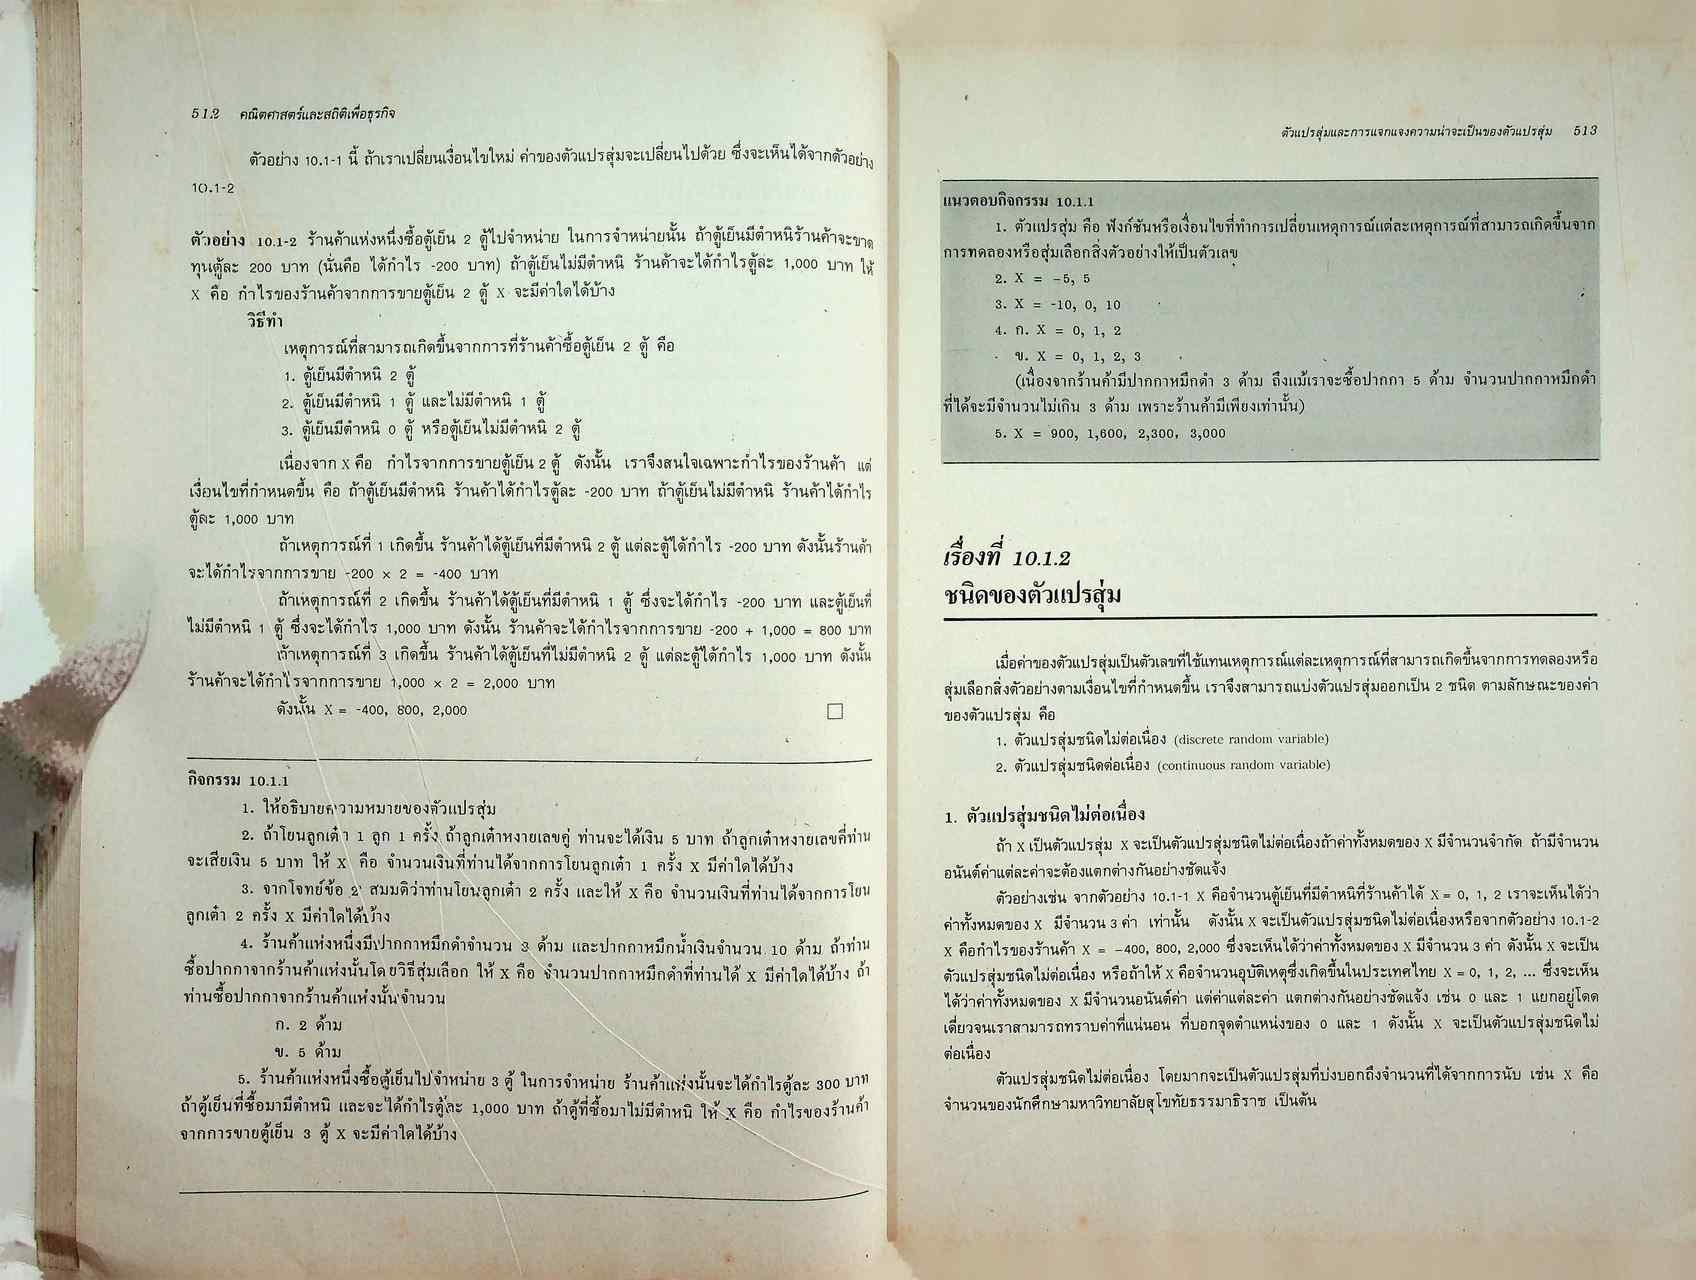 512 คณิตศาสตร์และสถิติเพื่อธุรกิจ
ตัวอย่าง 10.1-1 นี้ ถ้าเราเปลี่ยนเงื่อนไขใหม่ ค่าของตัวแปรสุ่มจะเปลี่ยนไปด้วย ซึ่งจะเห็นได้จากตัวอย่าง
10.1-2
ตัวอย่าง 10.1-2 ร้านค้าแห่งหนึ่งซื้อตู้เย็น 2 ตู้ไปจำหน่าย ในการจำหน่ายนั้น ถ้าตู้เย็นมีตำหนิร้านค้าจะขาด
ทุนตู้ละ 200 บาท (นั่นคือ ได้กำไร -200 บาท) ถ้าตู้เย็นไม่มีตำหนิ ร้านค้าจะได้กำไรตู้ละ 1,000 บาท ให้
X คือ กำไรของร้านค้าจากการขายตู้เย็น 2 ตู้ X จะมีค่าใดได้บ้าง
วิธีทำ
เหตุการณ์ที่สามารถเกิดขึ้นจากการที่ร้านค้าซื้อตู้เย็น 2 ตู้ คือ
1. ตู้เย็นมีตำหนิ 2 ตู้
2. ตู้เย็นมีตำหนิ 1 ตู้ และไม่มีตำหนิ 1 ตู้
3. ตู้เย็นมีตำหนิ 0 ตู้ หรือตู้เย็นไม่มีตำหนิ 2 ตู้
เนื่องจาก X คือ กำไรจากการขายตู้เย็น 2 ตู้ ดังนั้น เราจึงสนใจเฉพาะกำไรของร้านค้า แต่
เงื่อนไขที่กำหนดขึ้น คือ ถ้าตู้เย็นมีตำหนิ ร้านค้าได้กำไรตู้ละ -200 บาท ถ้าตู้เย็นไม่มีตำหนิ ร้านค้าได้กำไร
ตู้ละ 1,000 บาท
ถ้าเหตุการณ์ที่ 1 เกิดขึ้น ร้านค้าได้ตู้เย็นที่มีตำหนิ 2 ตู้ แต่ละตู้ได้กำไร -200 บาท ดังนั้นร้านค้า
จะได้กำไรจากการขาย -200 × 2 = -400 บาท
ถ้าเหตุการณ์ที่ 2 เกิดขึ้น ร้านค้าได้ตู้เย็นที่มีตำหนิ 1 ตู้ ซึ่งจะได้กำไร -200 บาท และตู้เย็นที่
ไม่มีตำหนิ 1 ตู้ ซึ่งจะได้กำไร 1,000 บาท ดังนั้น ร้านค้าจะได้กำไรจากการขาย -200 + 1,000 = 800 บาท
ถ้าเหตุการณ์ที่ 3 เกิดขึ้น ร้านค้าได้ตู้เย็นที่ไม่มีตำหนิ 2 ตู้ แต่ละตู้ได้กำไร 1,000 บาท ดังนั้น
ร้านค้าจะได้กำไรจากการขาย 1,000 × 2 = 2,000 บาท
ดังนั้น X = -400, 800, 2,000 □
กิจกรรม 10.1.1
1. ให้อธิบายความหมายของตัวแปรสุ่ม
2. ถ้าโยนลูกเต๋า 1 ลูก 1 ครั้ง ถ้าลูกเต๋าหงายเลขคู่ ท่านจะได้เงิน 5 บาท ถ้าลูกเต๋าหงายเลขคี่ท่าน
จะเสียเงิน 5 บาท ให้ X คือ จำนวนเงินที่ท่านได้จากการโยนลูกเต๋า 1 ครั้ง X มีค่าใดได้บ้าง
3. จากโจทย์ข้อ 2 สมมติว่าท่านโยนลูกเต๋า 2 ครั้ง และให้ X คือ จำนวนเงินที่ท่านได้จากการโยน
ลูกเต๋า 2 ครั้ง X มีค่าใดได้บ้าง
4. ร้านค้าแห่งหนึ่งมีปากกาหมึกดำจำนวน 3 ด้าม และปากกาหมึกน้ำเงินจำนวน 10 ด้าม ถ้าท่าน
ซื้อปากกาจากร้านค้าแห่งนั้นโดยวิธีสุ่มเลือก ให้ X คือ จำนวนปากกาหมึกดำที่ท่านได้ X มีค่าใดได้บ้าง ถ้า
ท่านซื้อปากกาจากร้านค้าแห่งนั้นจำนวน
ก. 2 ด้าม
ข. 5 ด้าม
5. ร้านค้าแห่งหนึ่งซื้อตู้เย็นไปจำหน่าย 3 ตู้ ในการจำหน่าย ร้านค้าแห่งนั้นจะได้กำไรตู้ละ 300 บาท
ถ้าตู้เย็นที่ซื้อมามีตำหนิ และจะได้กำไรตู้ละ 1,000 บาท ถ้าตู้ที่ซื้อมาไม่มีตำหนิ ให้ X คือ กำไรของร้านค้า
จากการขายตู้เย็น 3 ตู้ X จะมีค่าใดได้บ้าง
ตัวแปรสุ่มและการแจกแจงความน่าจะเป็นของตัวแปรสุ่ม 513
แนวตอบกิจกรรม 10.1.1
1. ตัวแปรสุ่ม คือ ฟังก์ชันหรือเงื่อนไขที่ทำการเปลี่ยนเหตุการณ์แต่ละเหตุการณ์ที่สามารถเกิดขึ้นจาก
การทดลองหรือสุ่มเลือกสิ่งตัวอย่างให้เป็นตัวเลข
2. X = -5, 5
3. X = -10, 0, 10
4. ก. X = 0, 1, 2
ข. X = 0, 1, 2, 3
(เนื่องจากร้านค้ามีปากกาหมึกดำ 3 ด้าม ถึงแม้เราจะซื้อปากกา 5 ด้าม จำนวนปากกาหมึกดำ
ที่ได้จะมีจำนวนไม่เกิน 3 ด้าม เพราะร้านค้ามีเพียงเท่านั้น)
5. X = 900, 1,600, 2,300, 3,000
เรื่องที่ 10.1.2
ชนิดของตัวแปรสุ่ม
เมื่อค่าของตัวแปรสุ่มเป็นตัวเลขที่ใช้แทนเหตุการณ์แต่ละเหตุการณ์ที่สามารถเกิดขึ้นจากการทดลองหรือ
สุ่มเลือกสิ่งตัวอย่างตามเงื่อนไขที่กำหนดขึ้น เราจึงสามารถแบ่งตัวแปรสุ่มออกเป็น 2 ชนิด ตามลักษณะของค่า
ของตัวแปรสุ่ม คือ
1. ตัวแปรสุ่มชนิดไม่ต่อเนื่อง (discrete random variable)
2. ตัวแปรสุ่มชนิดต่อเนื่อง (continuous random variable)
1. ตัวแปรสุ่มชนิดไม่ต่อเนื่อง
ถ้า X เป็นตัวแปรสุ่ม X จะเป็นตัวแปรสุ่มชนิดไม่ต่อเนื่องถ้าค่าทั้งหมดของ X มีจำนวนจำกัด ถ้ามีจำนวน
อนันต์ค่าแต่ละค่าจะต้องแตกต่างกันอย่างชัดแจ้ง
ตัวอย่างเช่น จากตัวอย่าง 10.1-1 X คือจำนวนตู้เย็นที่มีตำหนิที่ร้านค้าได้ X = 0, 1, 2 เราจะเห็นได้ว่า
ค่าทั้งหมดของ X มีจำนวน 3 ค่า เท่านั้น ดังนั้น X จะเป็นตัวแปรสุ่มชนิดไม่ต่อเนื่องหรือจากตัวอย่าง 10.1-2
X คือกำไรของร้านค้า X = -400, 800, 2,000 ซึ่งจะเห็นได้ว่าค่าทั้งหมดของ X มีจำนวน 3 ค่า ดังนั้น X จะเป็น
ตัวแปรสุ่มชนิดไม่ต่อเนื่อง หรือถ้าให้ X คือจำนวนอุบัติเหตุซึ่งเกิดขึ้นในประเทศไทย X = 0, 1, 2, ... ซึ่งจะเห็น
ได้ว่าค่าทั้งหมดของ X มีจำนวนอนันต์ค่า แต่ค่าแต่ละค่า แตกต่างกันอย่างชัดแจ้ง เช่น 0 และ 1 แยกอยู่โดด
เดี่ยวจนเราสามารถทราบค่าที่แน่นอน ที่บอกจุดตำแหน่งของ 0 และ 1 ดังนั้น X จะเป็นตัวแปรสุ่มชนิดไม่
ต่อเนื่อง
ตัวแปรสุ่มชนิดไม่ต่อเนื่อง โดยมากจะเป็นตัวแปรสุ่มที่บ่งบอกถึงจำนวนที่ได้จากการนับ เช่น X คือ
จำนวนของนักศึกษามหาวิทยาลัยสุโขทัยธรรมาธิราช เป็นต้น